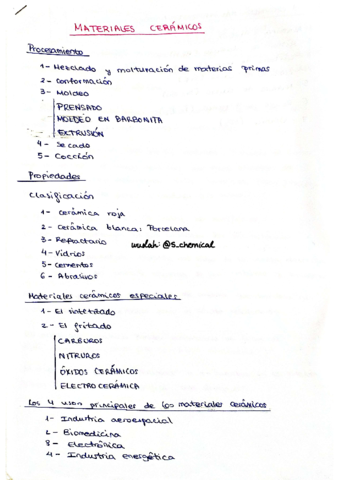 MATERIALES CERÁMICOS
Procesamiento
1- Mezclado y molturación de materias primas
2- Conformación
3- Moldeo
PRENSADO
MOLDEO EN BARBOTITA
EXTRUSIÓN
4- Secado
5- Cocción
Propiedades
Clasificación
1- cerámica roja
2- cerámica blanca: Porcelana
3- Refractario
wuolah: @S_chemical
4- Vidrios
5- cementos
6- Abrasivos
Materiales cerámicos especiales
1- El sinterizado
2- El fritado
CARBUROS
NITRUROS
ÓXIDOS CERÁMICOS
ELECTROCERÁMICA
Los 4 usos principales de los materiales cerámicos
1- Industria aeroespacial
2- Biomedicina
3- Electrónica
4- Industria energética